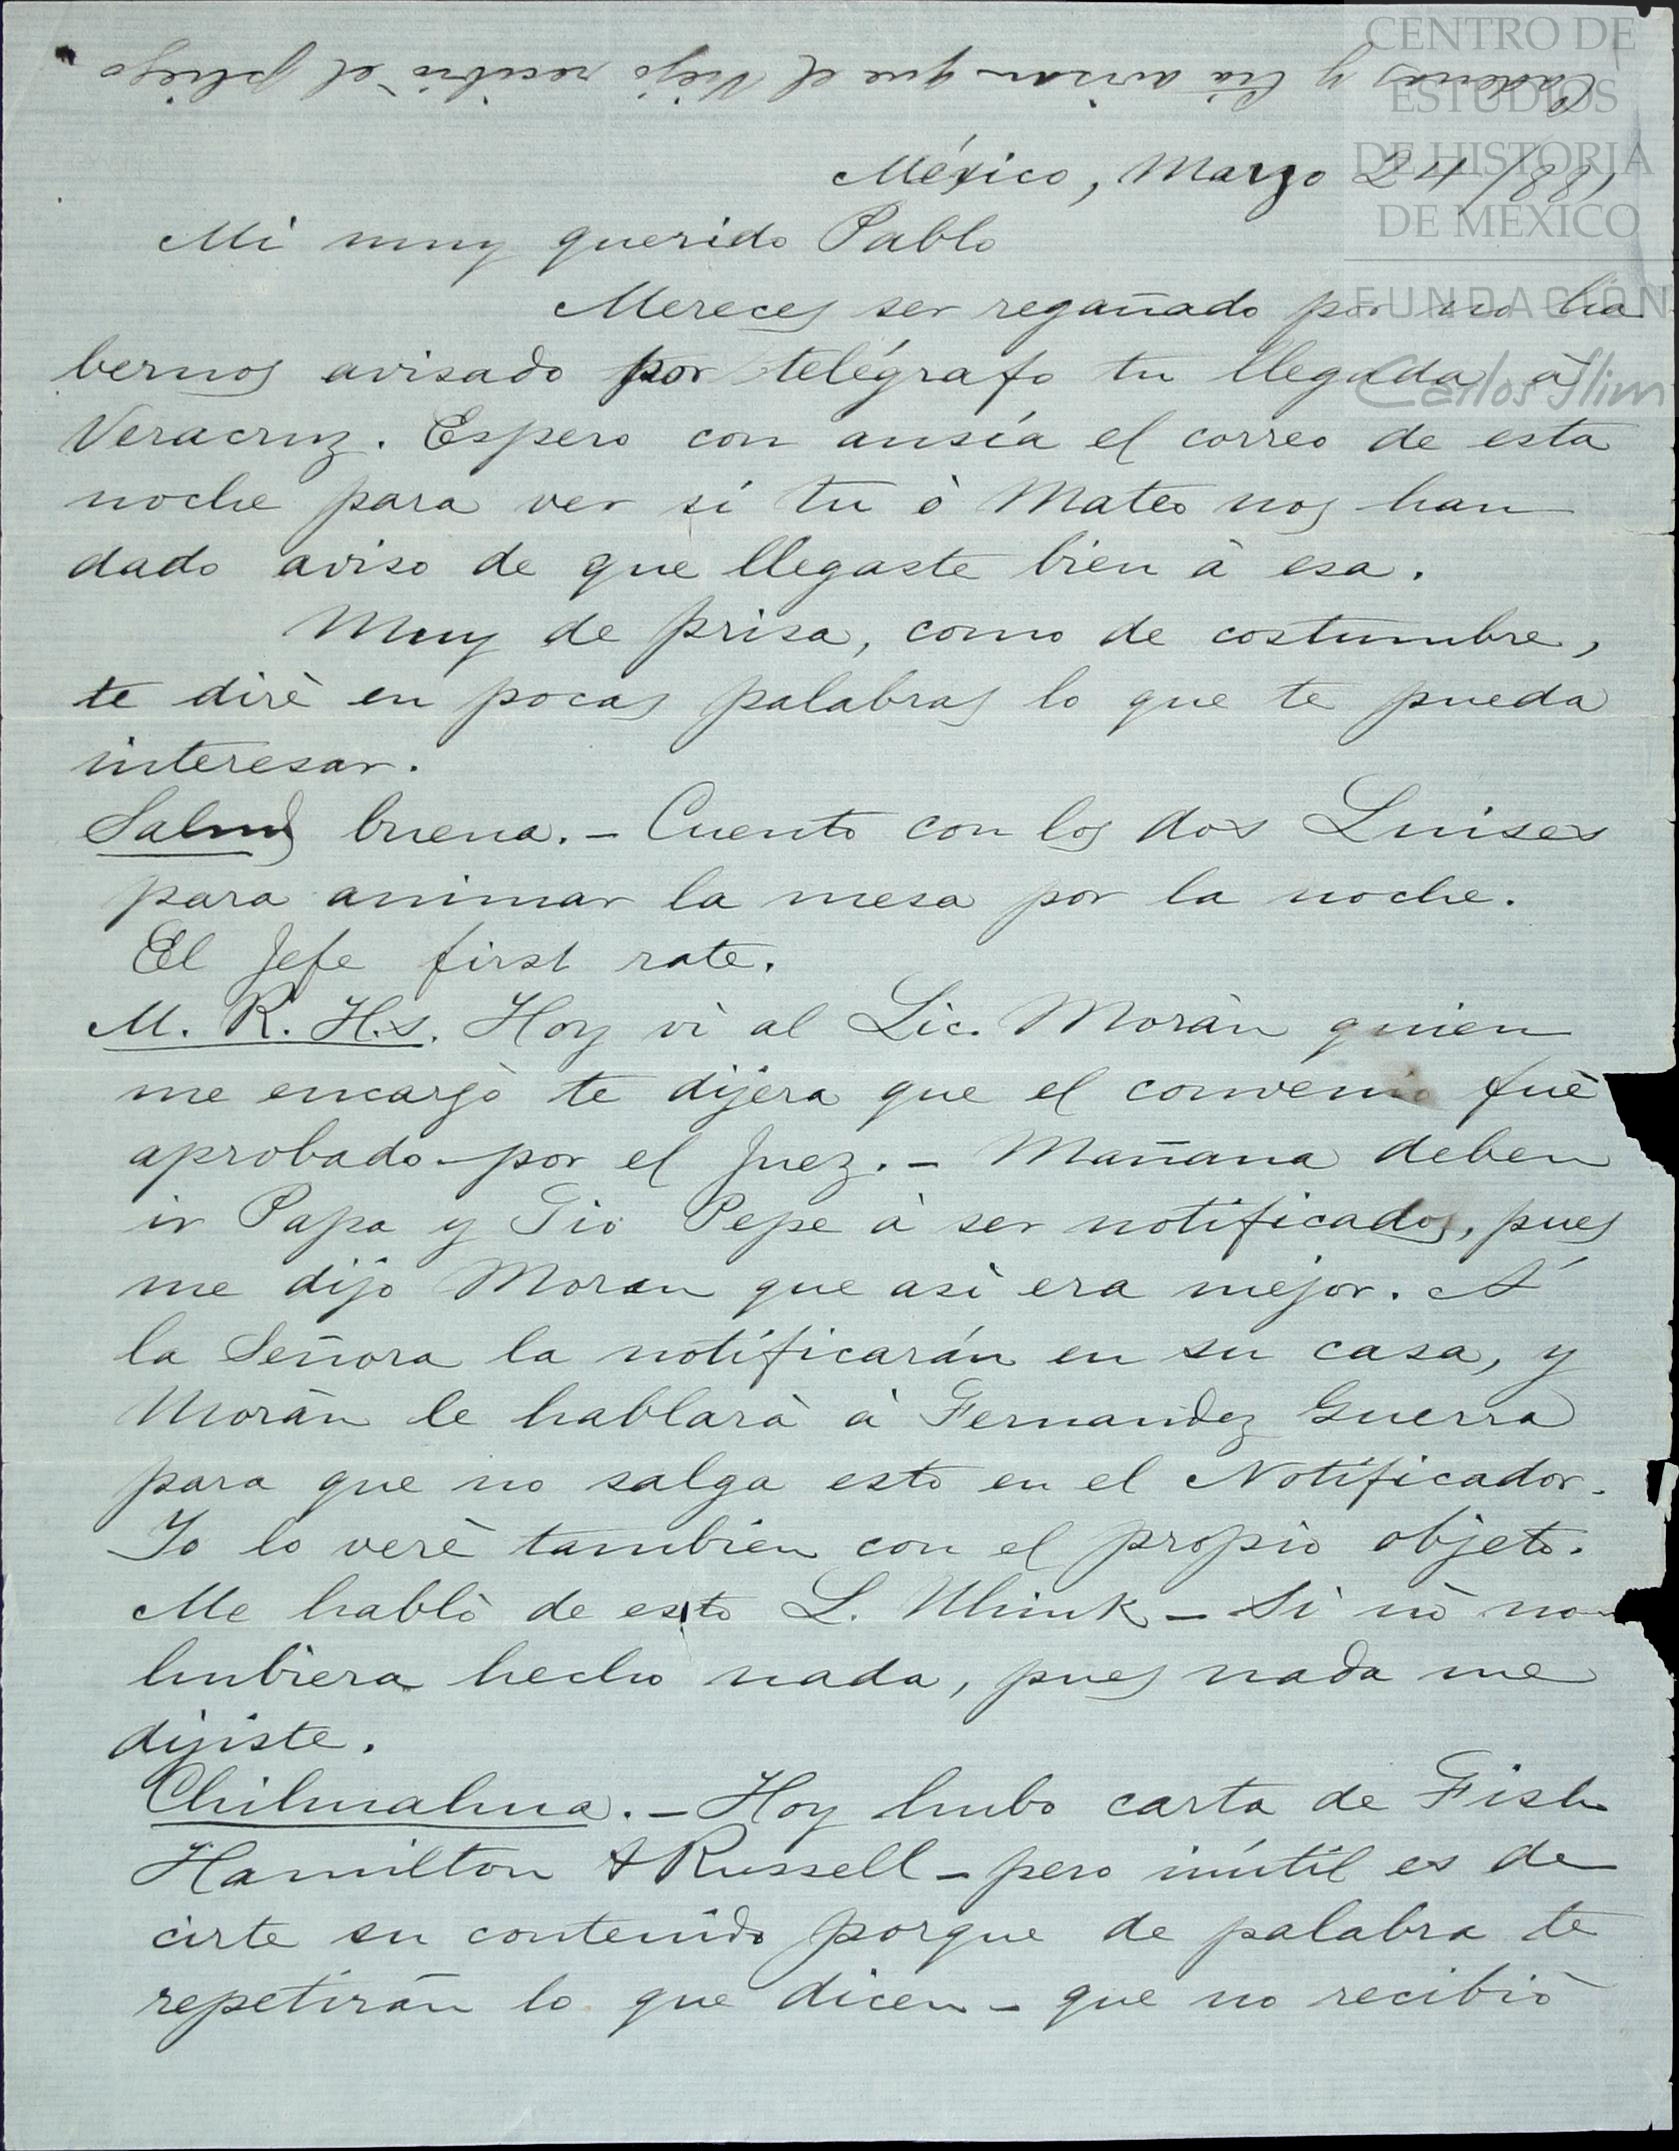 Cadena y Cía avisan que el Viejo recibió el pliego
CENTRO DE
ESTUDIOS
DE HISTORIA
DE MÉXICO
FUNDACIÓN
Carlos Slim
México, Marzo 24/88,
Mi muy querido Pablo
Mereces ser regañado por no ha
bernos avisado por telégrafo tu llegada à
Veracruz. Espero con ansía el correo de esta
noche para ver si tu ò Mateo nos han
dado aviso de que llegaste bien à esa.
Muy de prisa, como de costumbre,
te dirè en pocas palabras lo que te pueda
interesar.
Salud buena. - Cuento con los dos Luises
para animar la mesa por la noche.
El Jefe first rate.
M. R. H.s. Hoy vì al Lic. Moràn quien
me encargò te dijera que el convenio fuè
aprobado por el Juez. - Mañana deben
ir Papa y Tio Pepe à ser notificados, pues
me dijo Moran que asì era mejor. A
la Señora la notificarán en su casa, y
Moràn le hablarà à Fernandez Guerra
para que no salga esto en el Notificador.
Yo lo verè tambien con el propio objeto.
Me hablò de esto L. - Si nò no
hubiera hecho nada, pues nada me
dijiste.
Chilmahua. - Hoy hubo carta de Fish
Hamilton & Russell - pero inútil es de
cirte su contenido porque de palabra te
repetiràn lo que dicen - que no recibiò